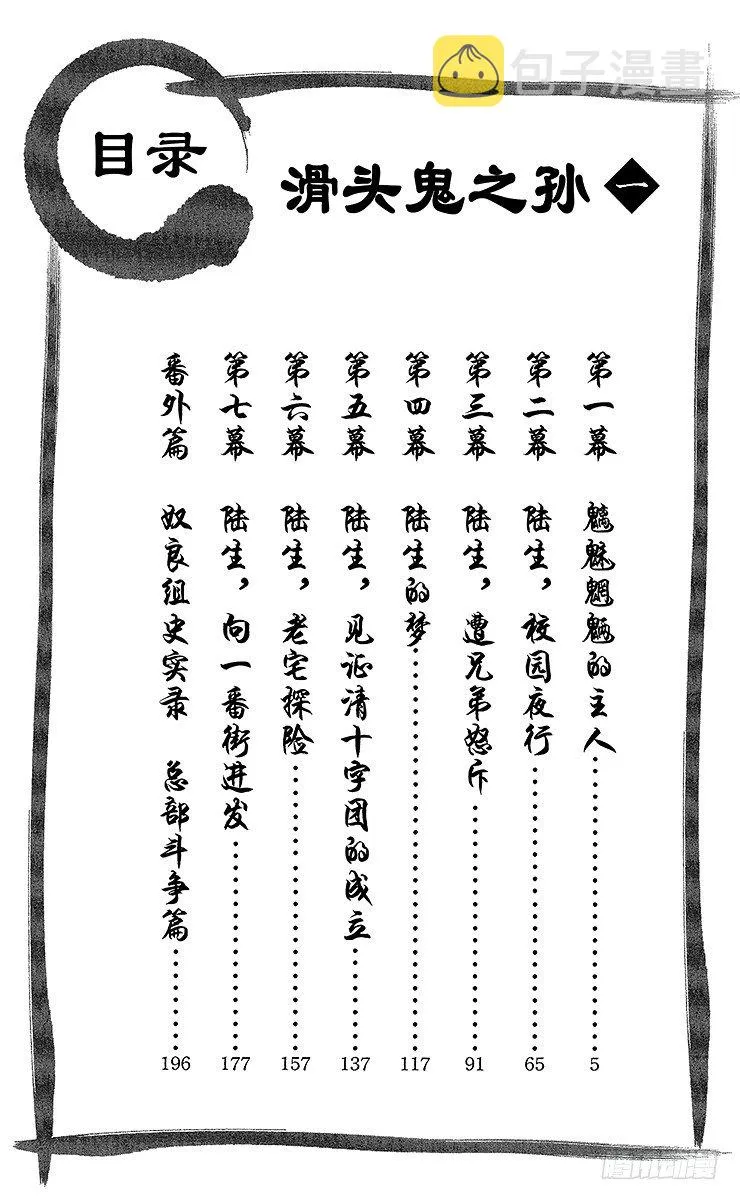 包子漫畫
目录
滑头鬼之孙 一
第一幕 魑魅魍魉的主人 5
第二幕 陆生，校园夜行 65
第三幕 陆生，遭兄弟怒斥 91
第四幕 陆生的梦 117
第五幕 陆生，见证清十字团的成立 137
第六幕 陆生，老宅探险 157
第七幕 陆生，向一番街进发 177
番外篇 奴良组史实录 总部斗争篇 196